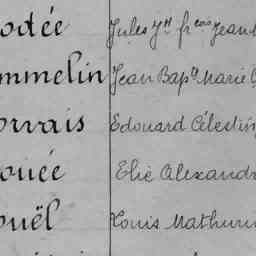 odée Jules Jn frçois Jean
mmelin Jean Bapte Marie
orvais Edouard Célestin
ouée Elie Alexand
ouël Louis Mathuri